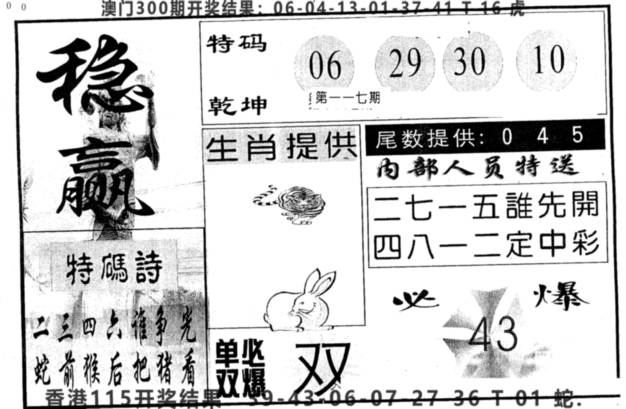 澳门300期开奖结果：06-04-13-01-37-41 T 16 虎
稳赢
特码
乾坤
06 29 30 10
第一一七期
生肖提供
尾数提供: 0 4 5
内部人员特送
二七一五誰先開
四八一二定中彩
特碼詩
二三四六谁争先
蛇前猴后把猪看
必 爆
43
单双必爆
双
香港115开奖结果 39-43-06-07-27 36 T 01 蛇.